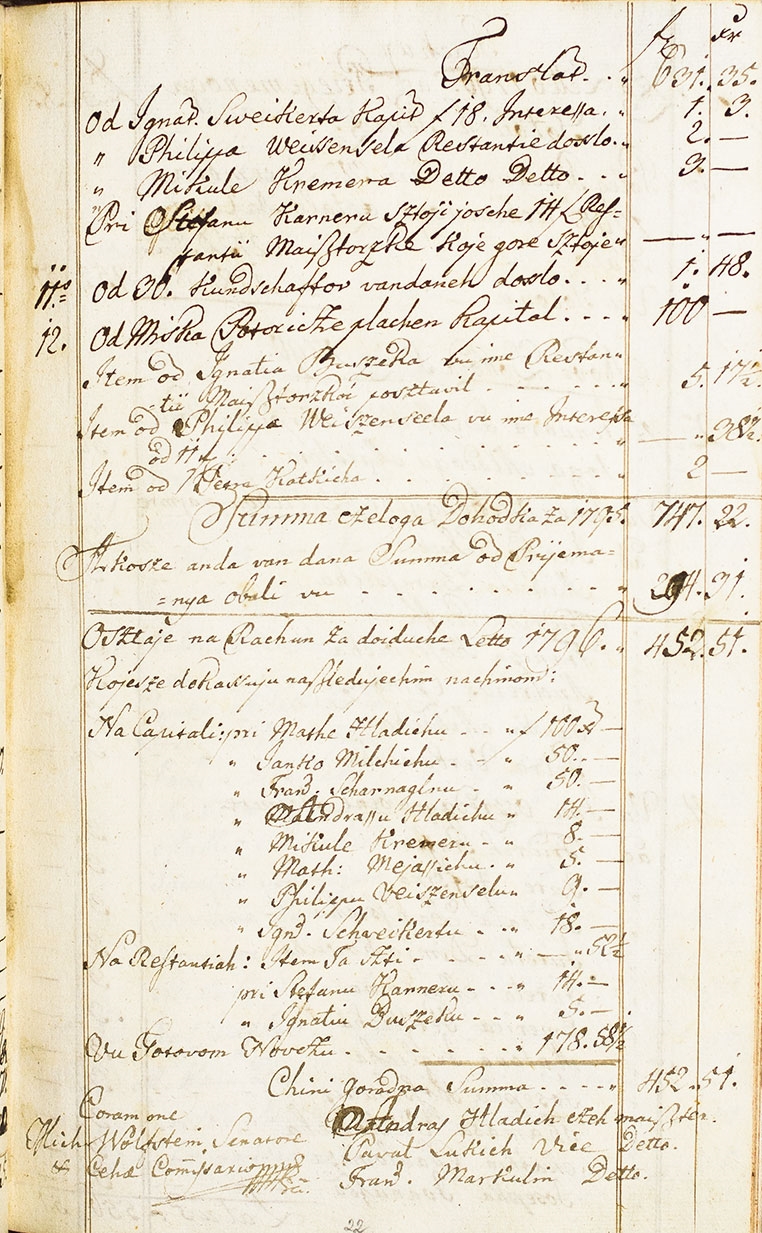 fr xr
Translat. . „ 631. 35.
Od Ignat. Sweikerta Kapit f 18. Interessa. „ 1. 3.
„ Philippa Weissensela Restantie dosslo. „ 2. —
„ Mikule Kremera Detto Detto. . . „ 3. —
Pri Stefanu Karneru sztoji josche 14 f Res=
tantii Maisztorzke koje gore sztoje „ — „ —
11. Od 36. Kundschaftov vandaneh dosslo. . . . „ 1. 48.
12. Od Miska plachen Kapital. . . . „ 100 —
Item od Ignatia Duszeka vu ime Restan=
tii Maisztorzkoi posztavil - - - - - „ 5. 17½.
Item od Philippa Weiszenseela vu ime Interessa
od 11 f. . . . . . . . . . . „ — „ 38½.
Item od Petra Katkicha . . . . . . „ 2 —
Summa czeloga Dohodka za 1795. 747. 22.
Akosze anda van dana Summa od Prijema=
=nya obali vu - - - - - - - - „ 294. 31.
Osztaje na Rachun za doiduche Letto 1796. „ 452. 51.
Kojesze dokassuju naszledujechim nachinom:
Na Capitali: pri Mathe Hladichu - - „ f 100 x —
„ Janko Milchichu - - „ 50. —
„ Franc. Scharnaglnu - „ 50. —
„ Andrassu Hladichu „ 14. —
„ Mikule Kremeru - „ 8. —
„ Math: Mejassichu. „ 5. —
„ Philippu Veiszenselu „ 9. —
„ Ignd. Schveikertu - . „ 18. —
Na Restantiah: Item Ta Isti - - - - - „ — „ 52½
pri Stefanu Karneru - - - „ 14. —
„ Ignatiu Duszeku - - - „ 5. —
Vu Gotovom Novczu. - - - - - - - „ 178. 58½
Chini goradna Summa - - - - „ 452. 51.
Coram me Andras Hladich czeh maiszter.
Mich Wolfstein Senatore Paval Lukich Vice Detto.
& Cehae Commissario mp Franc. Markulin Detto.
22